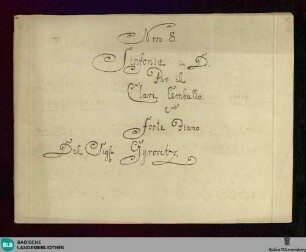 Nro 8.
Sinfonia in D.
Per il
Clavi Cembalo
o
Forte Piano
Del Sigr Gyrovetz.
BLB
BADISCHE
LANDESBIBLIOTHEK
Baden-Württemberg